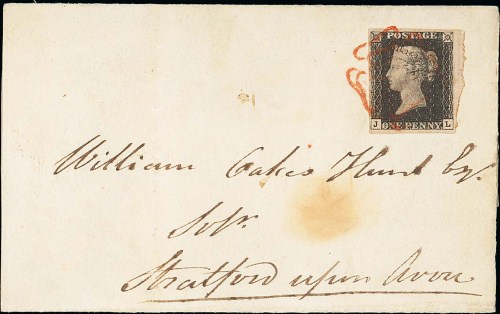 POSTAGE
J ONE PENNY L
William Oakes Hunt
Solr.
Stratford upon Avon